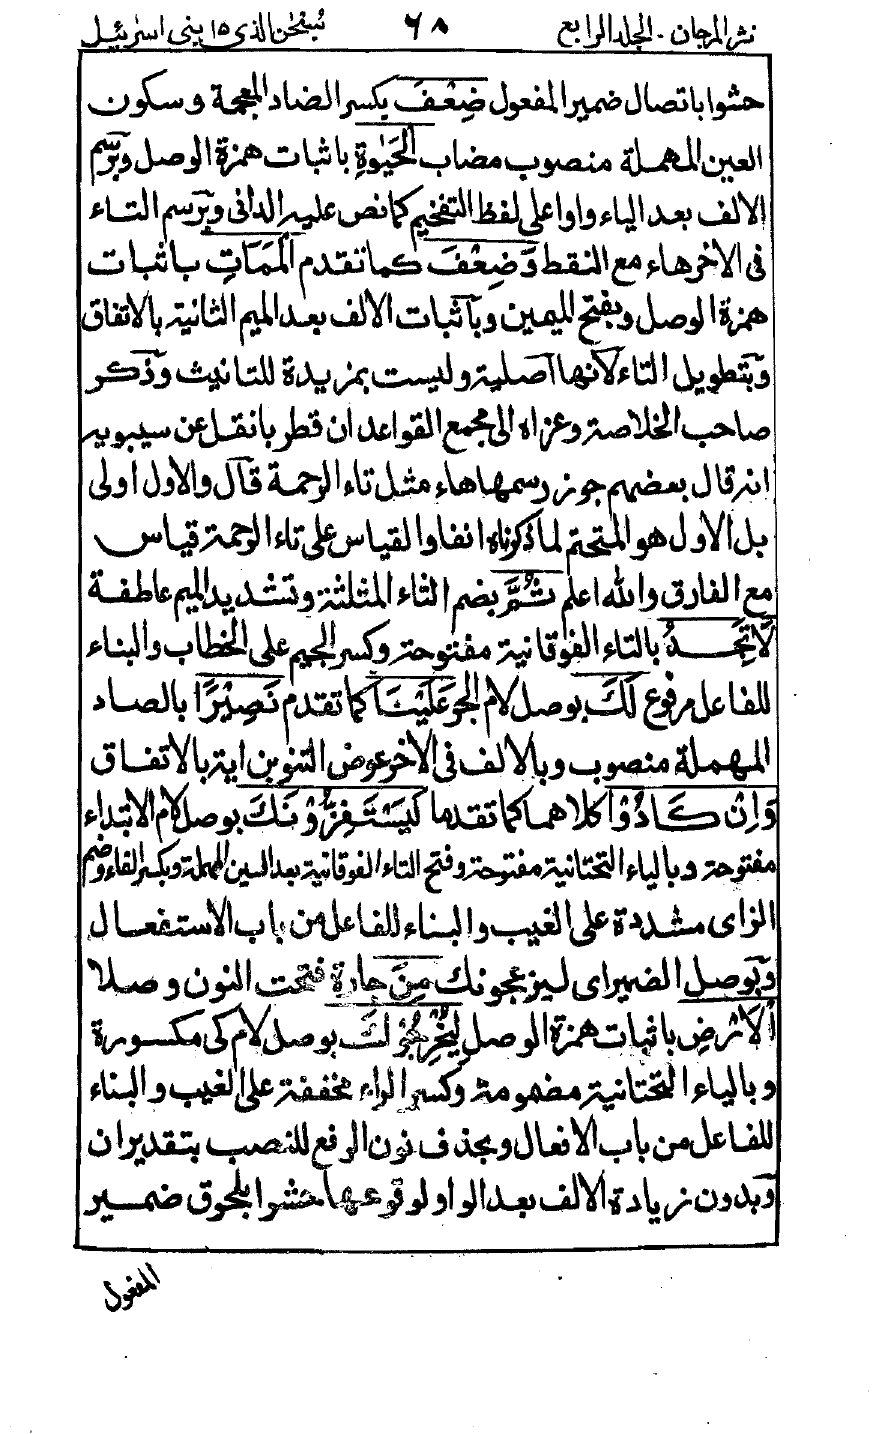 نثر المرجان - المجلد الرابع ٦٨ سبحٰن الذى ١٥ بنى اسرءيل
حشوا باتصال ضمير المفعول ضِعْفَ بكسر الضاد المعجمة وسكون
العين المهملة منصوب مضاب الْحَيٰوةِ باثبات همزة الوصل وبرسم
الالف بعد الياء واوا على لفظ التفخيم كما نص عليه الدانى وبرسم التاء
فى الاخرهاء مع النقط وَضِعْفَ كما تقدم الْمَمَاتِ باثبات
همزة الوصل وبفتح الميمين وبآثبات الالف بعد الميم الثانية بالاتفاق
وبتطويل التاء لانها اصلية وليست بمزيدة للتانيث وذكر
صاحب الخلاصة وعزاه الى مجمع القواعد ان قطر بانقل عن سيبويه
انه قال بعضهم جوز رسمها هاء مثل تاء الرحمة قال والاول اولى
بل الاول هو المتحتم لما ذكرناه انفا والقياس على تاء الرحمة قياس
مع الفارق والله اعلم ثُمَّ بضم الثاء المثلثة وتشديد الميم عاطفة
لَا تَجِدُ بالتاء الفوقانية مفتوحة وكسر الجيم على الخطاب والبناء
للفاعل مرفوع لَكَ بوصل لام الجر عَلَيْنَا كما تقدم نَصِيْرًا بالصاد
المهملة منصوب وبالالف فى الاخر عوض التنوين اية بالاتفاق
وَاِنْ كَادُوْا كلاهما كما تقدما لَيَسْتَفِزُّوْنَكَ بوصل لام الابتداء
مفتوحة وبالياء التحتانية مفتوحة وفتح التاء الفوقانية بعد السين المهملة وبكسر الفاء وضم
الزاى مشددة على الغيب والبناء للفاعل من باب الاستفعال
وبوصل الضمير اى ليزعجونك مِنَ جارة فتحت النون وصلا
الْاَرْضِ باثبات همزة الوصل لِيُخْرِجُوْكَ بوصل لام كى مكسورة
وبالياء التحتانية مضمومة وكسر الراء مخففة على الغيب والبناء
للفاعل من باب الافعال وبحذف نون الرفع للنصب بتقدير ان
وبدون زيادة الالف بعد الواو لوقوعها حشوا بلحوق ضمير
المفعول